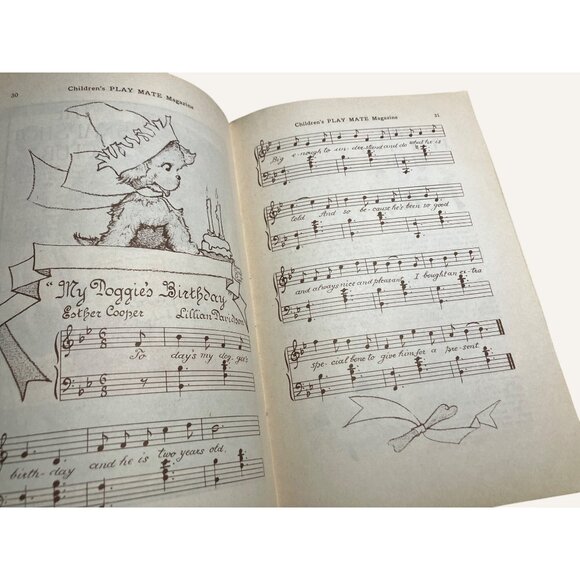 30
Children's PLAY MATE Magazine
"My Doggie's Birthday
Esther Cooper
Lillian Davidson
To day's my dog-gie's
birth-day and he is two years old,
Children's PLAY MATE Magazine
31
Big e-nough to un-derstand and do what he is
told And so be-cause he's been so good
and always nice and pleasant I bought an ex-tra
spe-cial bone to give him for a pres-ent